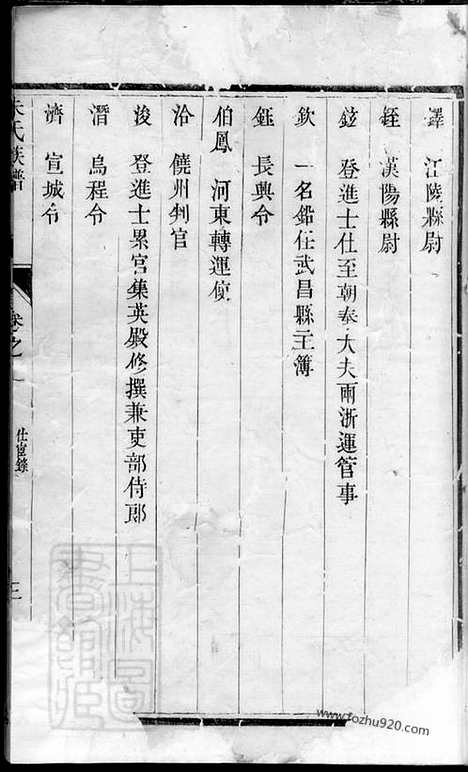 鐸 江陵縣尉
銍 漢陽縣尉
鉉 登進士仕至朝奉大夫兩浙運管事
欽 一名鉛任武昌縣主簿
鈺 長興令
伯鳳 河東轉運使
洽 饒州判官
浚 登進士累官集英殿修撰兼吏部侍郎
潛 烏程令
濟 宣城令
朱氏族譜
卷之
仕宦錄
三
上海圖書館
www.tozhu920.com